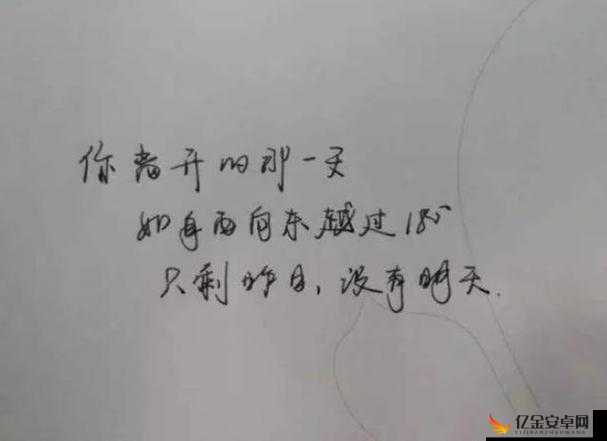 你离开的那一天
如自西向东越过180°
只剩昨日，没有明天.
亿金安卓网